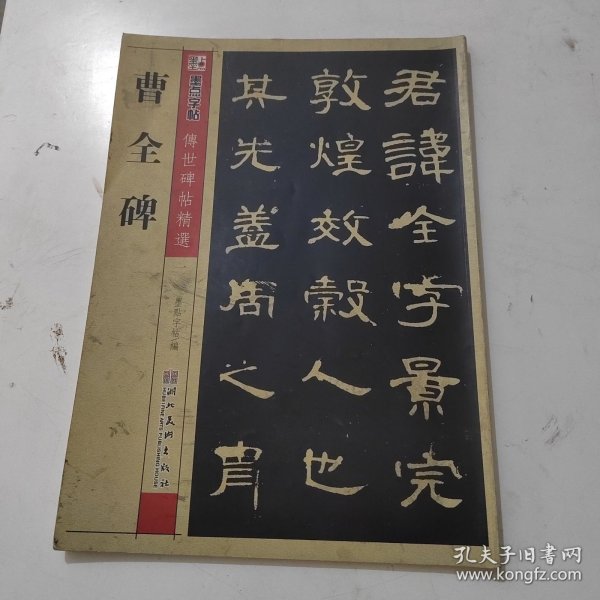 曹全碑
墨点字帖
傳世碑帖精選
墨點字帖 編
湖北美術出版社
HUBEI FINE ARTS PUBLISHING HOUSE
君諱全字景完
敦煌效穀人也
其先蓋周之胄
孔夫子旧书网
www.kongfz.com